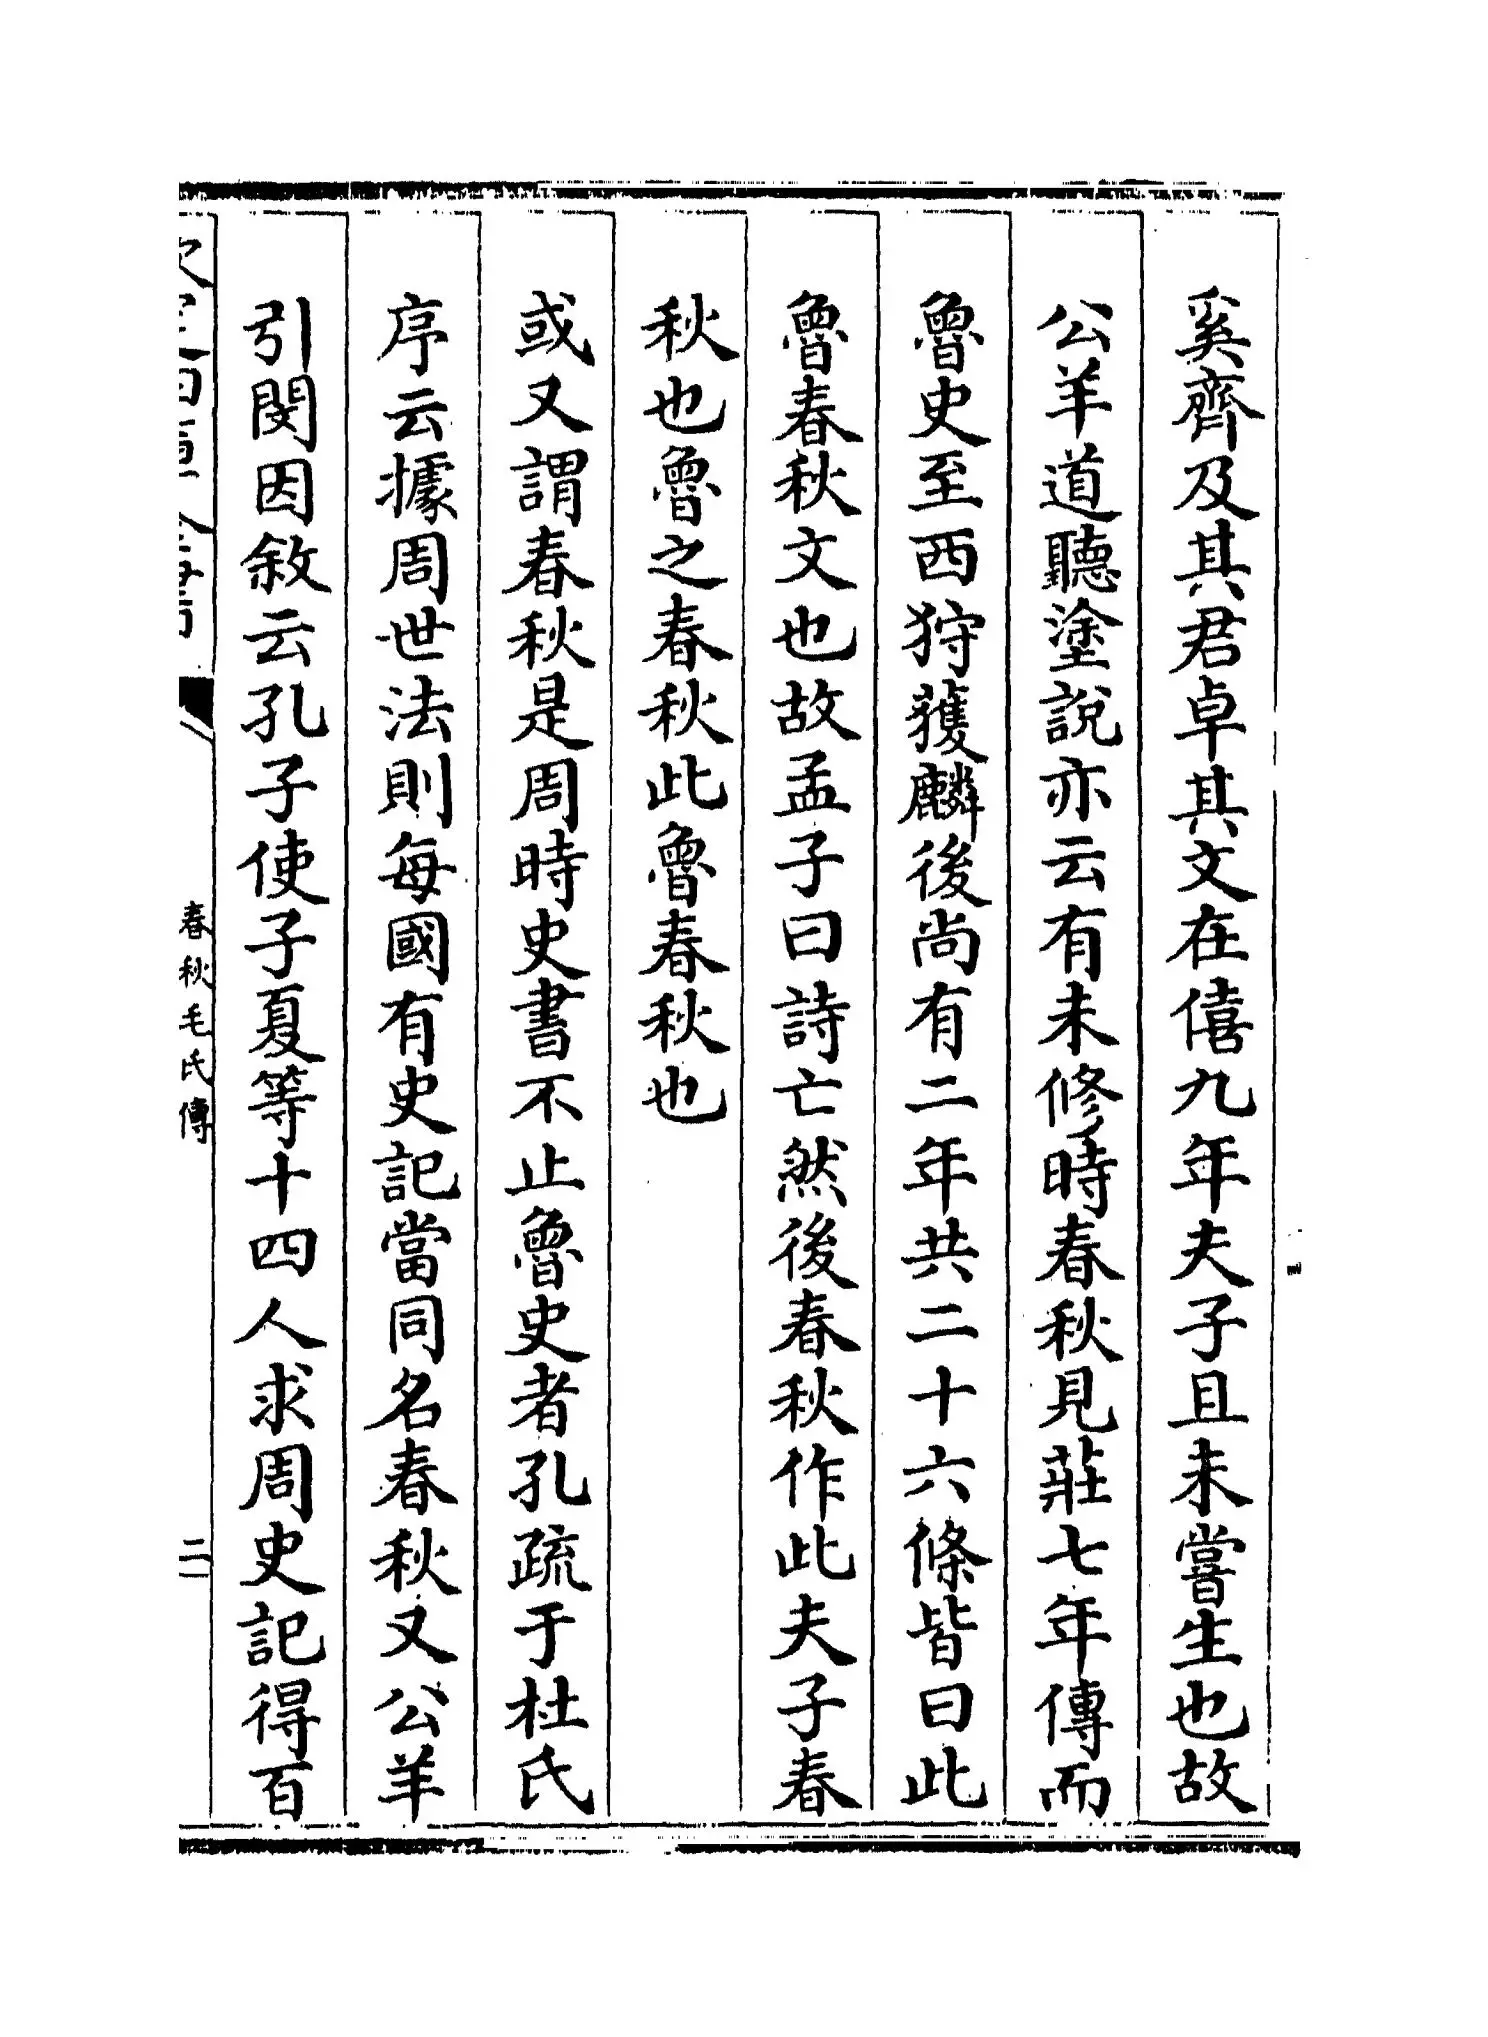 奚齊及其君卓其文在僖九年夫子且未嘗生也故
公羊道聽塗說亦云有未修時春秋見莊七年傳而
魯史至西狩獲麟後尚有二年共二十六條皆曰此
魯春秋文也故孟子曰詩亡然後春秋作此夫子春
秋也魯之春秋此魯春秋也
或又謂春秋是周時史書不止魯史者孔疏于杜氏
序云據周世法則每國有史記當同名春秋又公羊
引閔因敘云孔子使子夏等十四人求周史記得百
欽定四庫全書
春秋毛氏傳
二